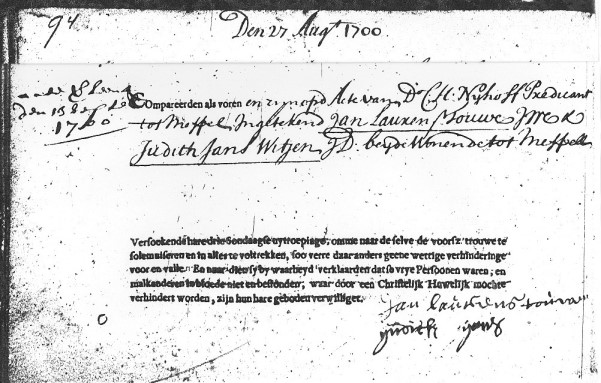 94
Den 27 Augt 1700
den 13 Sep 
1700
Compareerden als voren en zyn op d' Acte van Ds C. H. Nyhoff Predicant
tot Meppel, Ingetekend Jan Laurens Jouwe
Judith Jans Witjen J.D. beyde Wonende tot Meppel
Versoekende hare drie Sondaagse uytroepinge, omme naar de selve de voorsz. trouwe te
solemniseren en in alles te voltrekken, soo verre daar anders geene wettige verhinderinge
voor en valle. En naar dien sy by waarheyd verklaarden dat se vrye Persoonen waren; en
malkanderen in bloede niet en bestonden; waar door een Christelijk Houwelijk mochte
verhinders worden, zijn hun hare geboden verwilliget.
jan laurens
judith jans